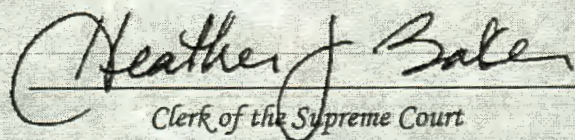 Heather J Baker
Clerk of the Supreme Court